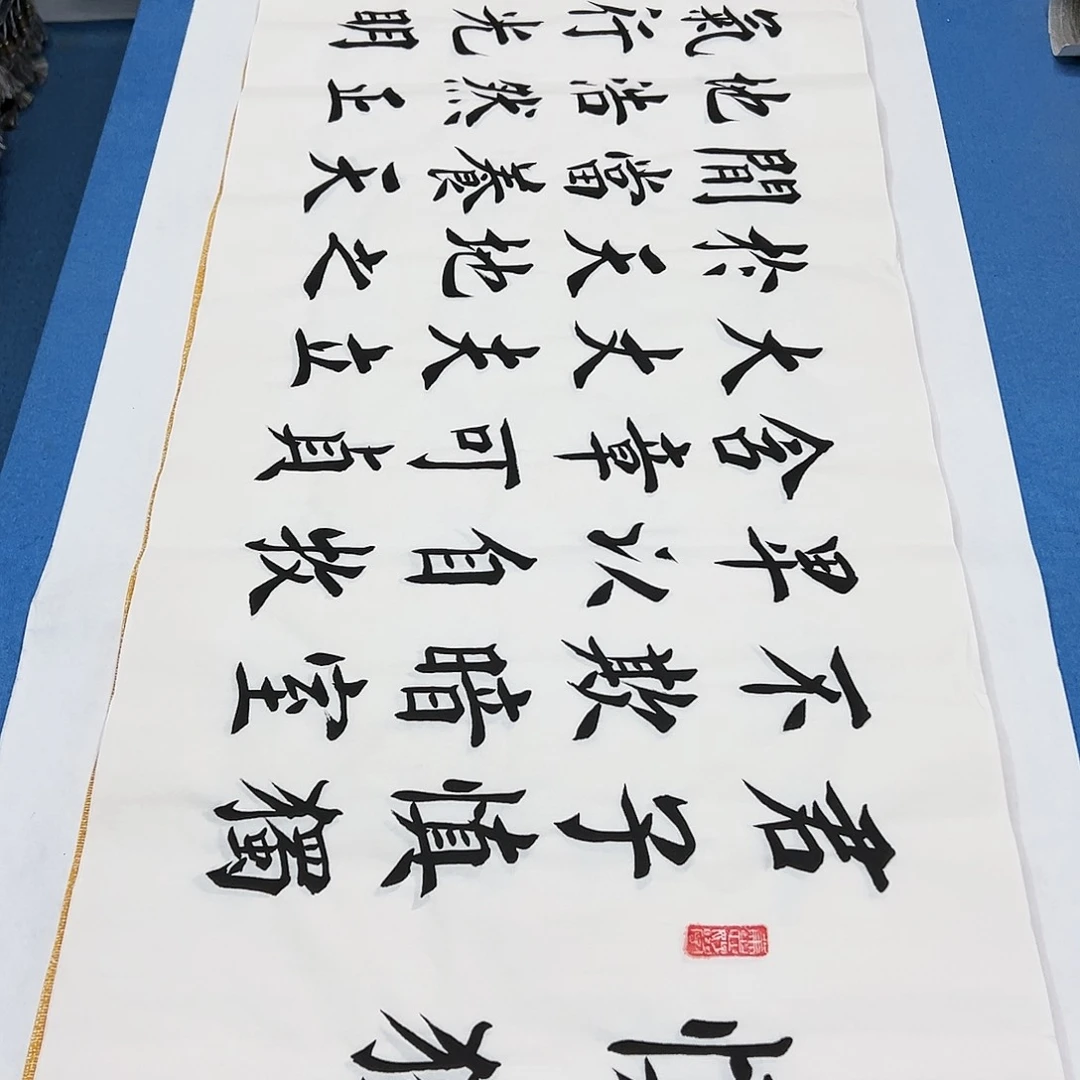 君子慎獨
不欺暗室
卑以自牧
含章可貞
大丈夫立
於天地之
間當養天
地浩然正
氣行光明